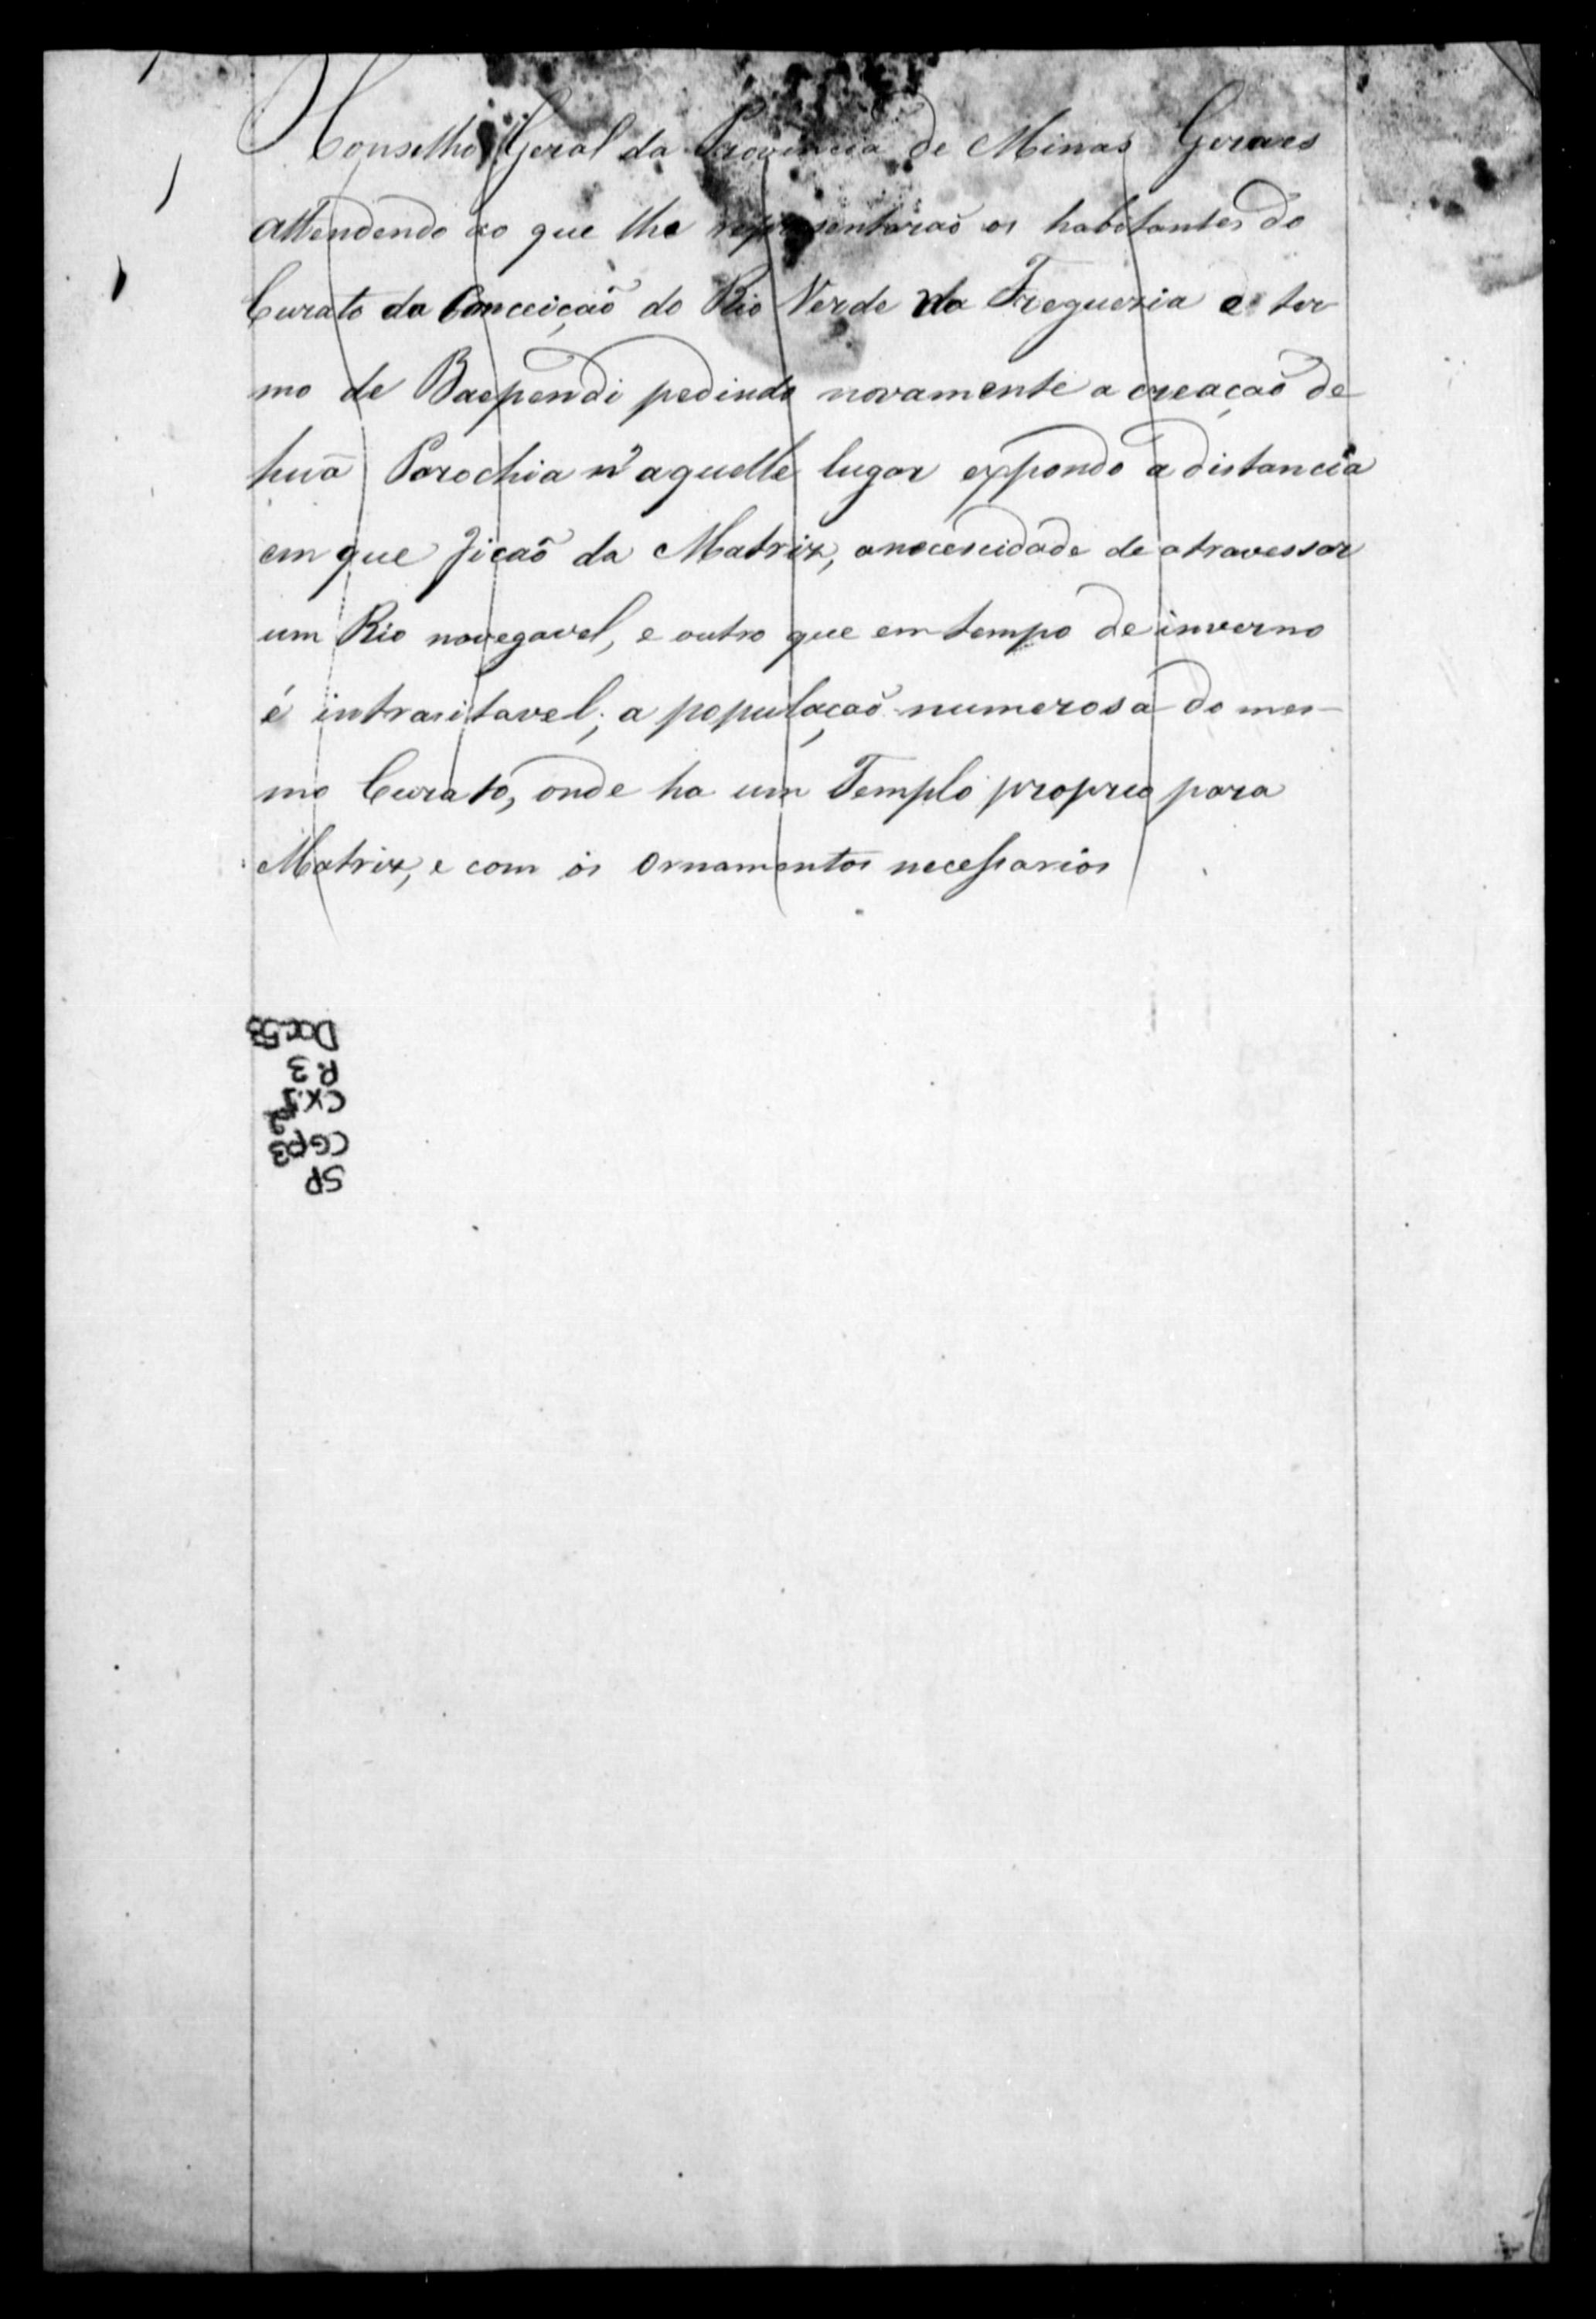 Conselho Geral da Provincia de Minas Geraes
attendendo ao que lhe representaraõ os habitantes do
Curato da Conceiçaõ do Rio Verde da Freguezia e ter
mo de Baependi pedindo novamente a creaçaõ de
huã Parochia n'aquelle lugar expondo a distancia
em que ficaõ da Matriz, a necescidade de atravessar
um Rio navegavel, e outro que em tempo de inverno
é intrasitavel; a populaçaõ numerosa do mes-
mo Curato, onde ha um Templo proprio para
Matriz, e com os Ornamentos necessarios
SP
CGP3
CX.2
P.3
Doc.53